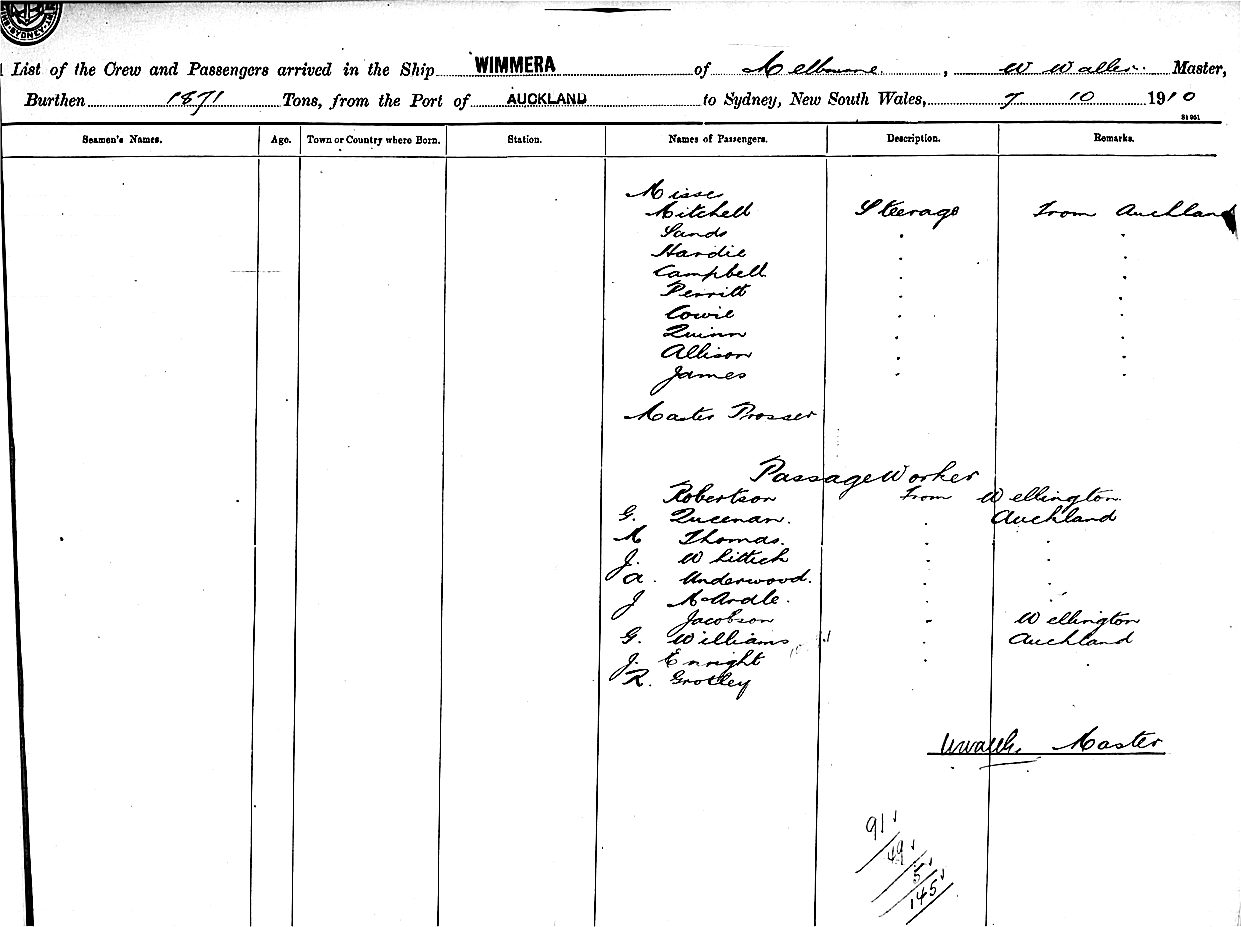 SYDNEY
List of the Crew and Passengers arrived in the Ship WIMMERA of Melbourne, W Waller Master,
Burthen 1871 Tons, from the Port of AUCKLAND to Sydney, New South Wales, 7 10 1910
Seamen's Names. Age. Town or Country where Born. Station. Names of Passengers. Description. Remarks.
Misse
Mitchell Steerage From Auckland
Sands " "
Hardie " "
Campbell " "
Perritt " "
Cowie " "
Quinn " "
Allison " "
James " "
Master Prosser
Passage Worker
Robertson From Wellington
G. Queenan. " Auckland
M Thomas. " "
J. Whittich " "
A. Underwood. " "
J McArdle. " "
Jacobson " Wellington
G. Williams " Auckland
J. Enright " "
R. Grotley
Master
91
49
5
145